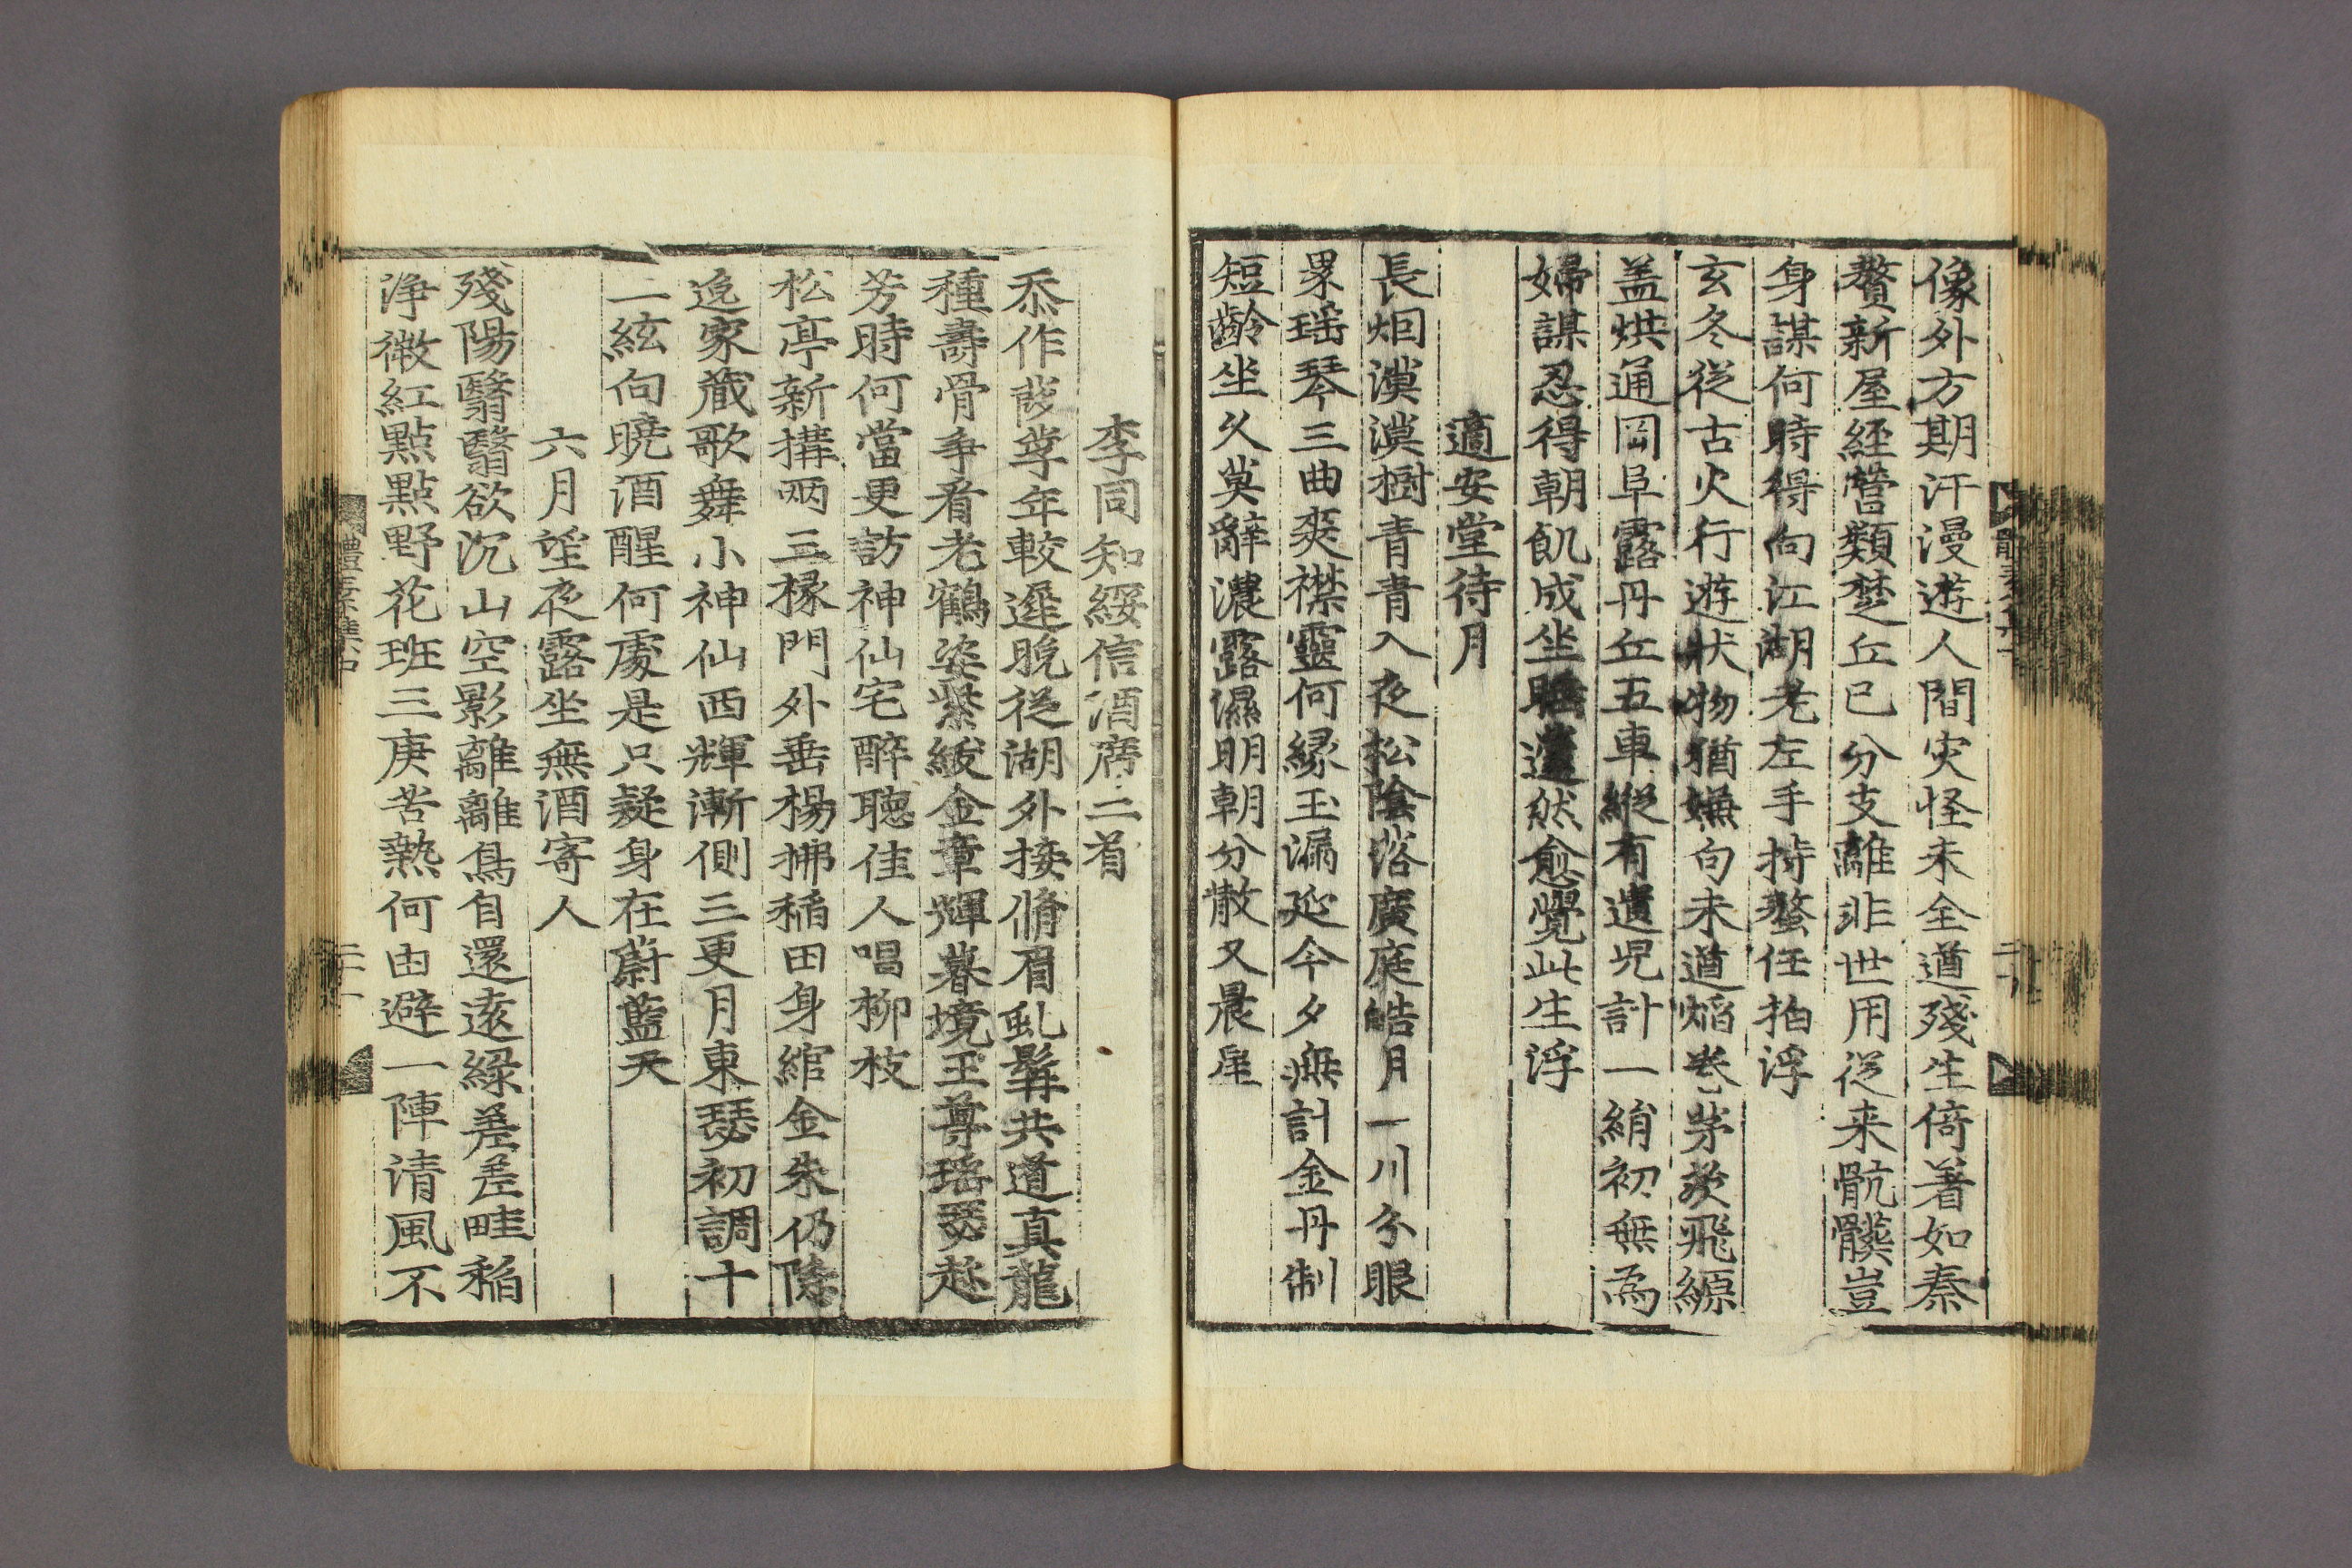 像外方期汗漫遊人間灾怪未全遒殘生倚著如秦
贅新屋経營類楚丘已分支離非世用從来骯髒豈
身謀何時得向江湖老左手持螯任拍浮
玄冬從古火行遊狀物猶嫌句未遒焰卷茅茨飛綠
盖烘通岡阜露丹丘五車縱有遺児計一綃初無為
婦謀忍得朝飢成坐睡蘧然愈覺此生浮
適安堂待月
長烟漠漠樹青青入夜松陰落廣庭皓月一川分眼
界瑶琴三曲爽襟靈何緣玉漏延今夕無計金丹制
短齡坐久莫辭濃露濕明朝分散又晨星
李同知綏信酒席二首
忝作葭莩年較遲晚從湖外接脩眉虬髯共道真龍
種壽骨争看老鶴姿紫綬金章輝暮境玉尊瑶瑟趂
芳時何當更訪神仙宅醉聽佳人唱柳枝
松亭新搆兩三椽門外垂楊拂稻田身綰金朱仍隱
逸家藏歌舞小神仙西輝漸側三更月東瑟初調十
二絃向曉酒醒何處是只疑身在蔚藍天
六月望夜露坐無酒寄人
殘陽翳翳欲沉山空影離離鳥自還遠綠差差畦稻
浄微紅點點野花班三庚苦熱何由避一陣清風不